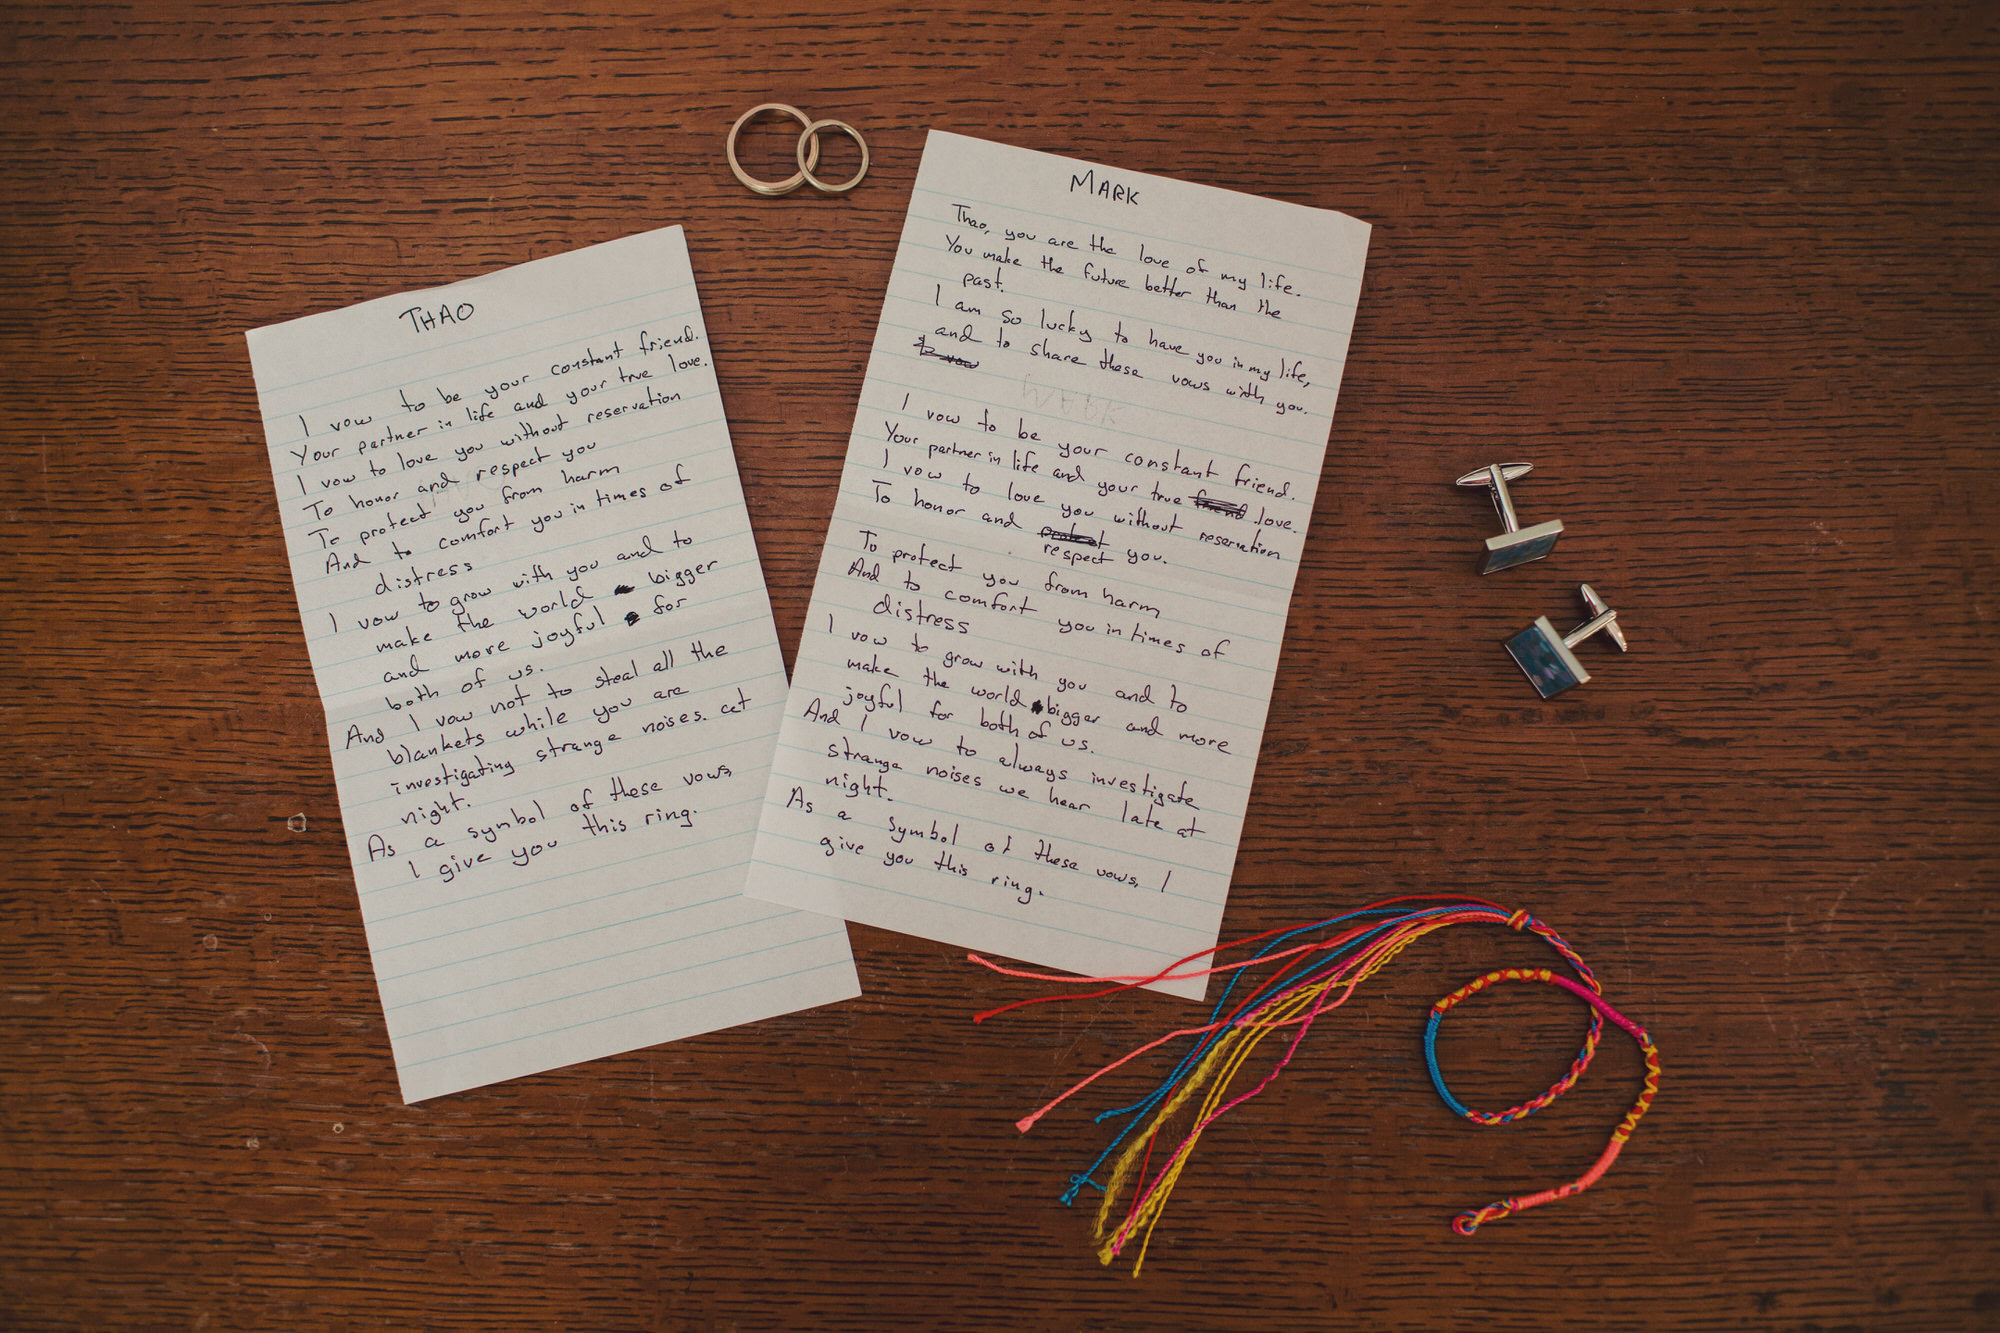 THAO
I vow to be your constant friend.
Your partner in life and your true love.
I vow to love you without reservation
To honor and respect you
To protect you from harm
And to comfort you in times of
distress
I vow to grow with you and to
make the world bigger
and more joyful for
both of us.
And I vow not to steal all the
blankets while you are
investigating strange noises. at
night.
As a symbol of these vows,
I give you this ring.
MARK
Thao, you are the love of my life.
You make the future better than the
past.
I am so lucky to have you in my life,
and to share these vows with you.
to vow
I vow to be your constant friend.
Your partner in life and your true friend love.
I vow to love you without reservation
To honor and protect you.
respect
To protect you from harm
And to comfort you in times of
distress
I vow to grow with you and to
make the world bigger and more
joyful for both of us.
And I vow to always investigate
strange noises we hear late at
night.
As a symbol of these vows, I
give you this ring.